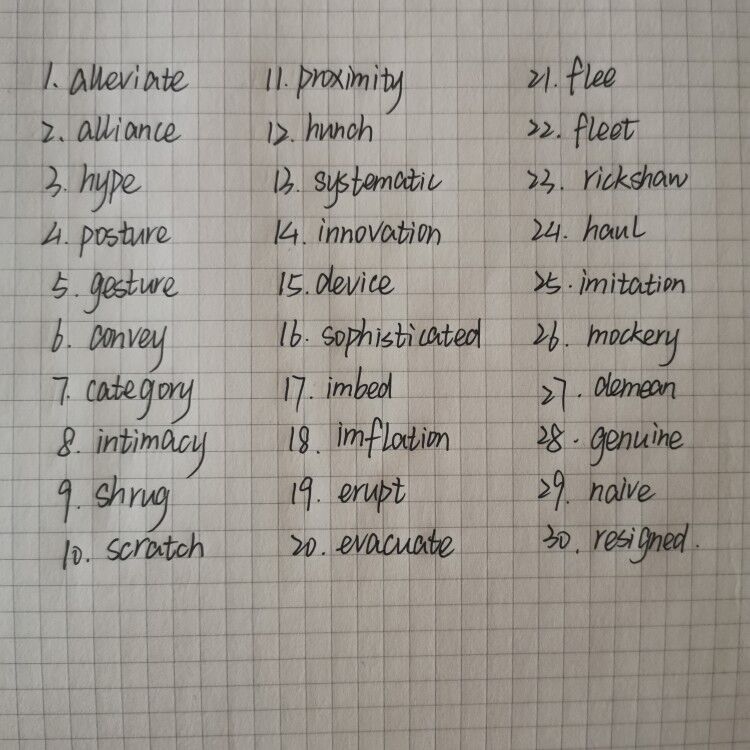 1. alleviate
2. alliance
3. hype
4. posture
5. gesture
6. convey
7. category
8. intimacy
9. shrug
10. scratch
11. proximity
12. hunch
13. systematic
14. innovation
15. device
16. sophisticated
17. imbed
18. imflation
19. erupt
20. evacuate
21. flee
22. fleet
23. rickshaw
24. haul
25. imitation
26. mockery
27. demean
28. genuine
29. naive
30. resigned.